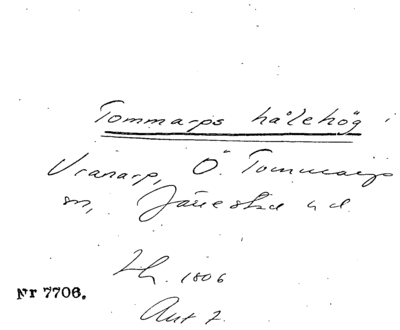 Tommarps hålehög i
Vranarp, Ö. Tommarps
sn, Järrestad hd.
Hh. 1806
Nr 7706.
Ant 7.